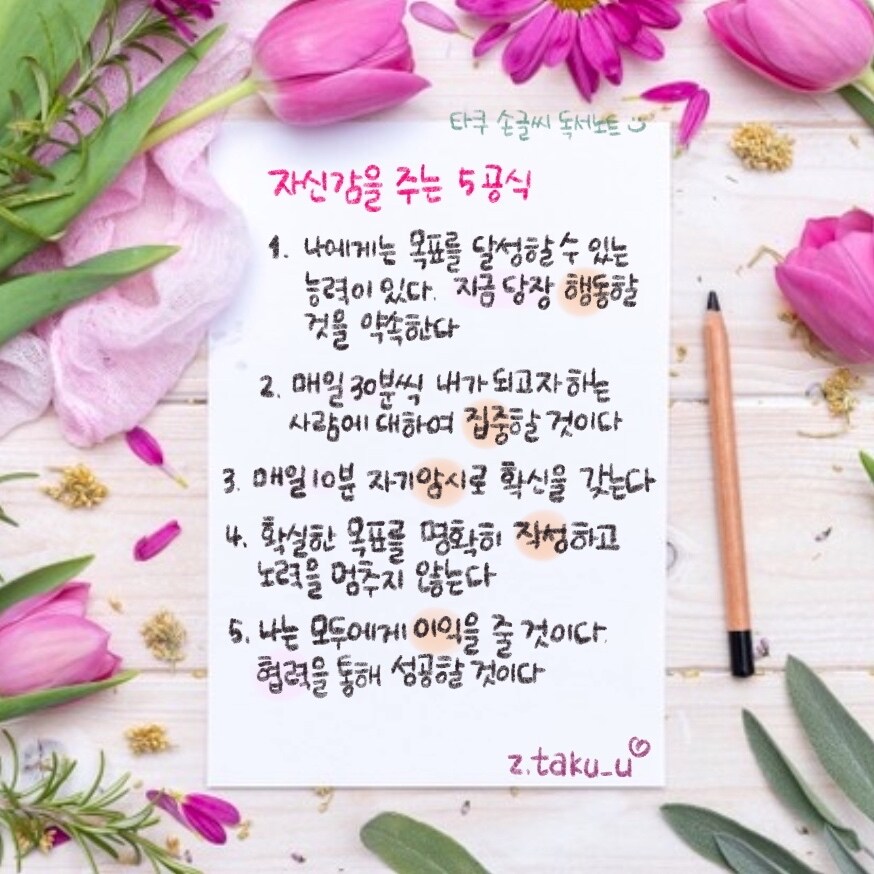 타쿠 손글씨 독서노트
자신감을 주는 5공식
1. 나에게는 목표를 달성할 수 있는
능력이 있다. 지금 당장 행동할
것을 약속한다
2. 매일 30분씩 내가 되고자 하는
사람에 대하여 집중할 것이다
3. 매일 10분 자기암시로 확신을 갖는다
4. 확실한 목표를 명확히 작성하고
노력을 멈추지 않는다
5. 나는 모두에게 이익을 줄 것이다.
협력을 통해 성공할 것이다
z.taku_u